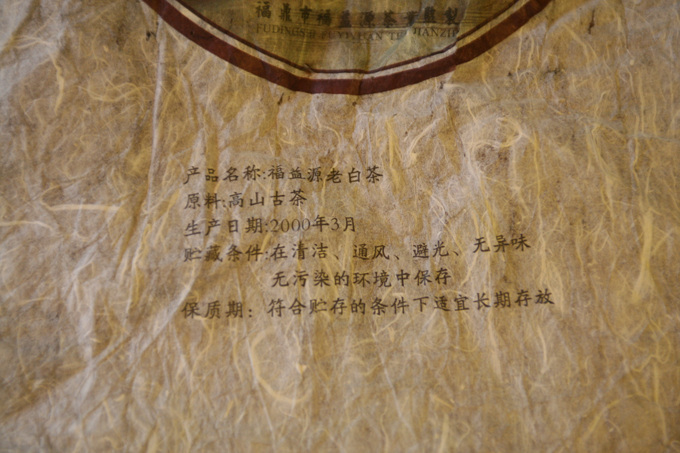 福鼎市福益源茶業監製
产品名称:福益源老白茶
原料:高山古茶
生产日期:2000年3月
贮藏条件:在清洁、通风、避光、无异味
无污染的环境中保存
保质期：符合贮存的条件下适宜长期存放